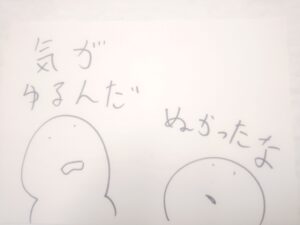 気が
ゆるんだ
ぬかったな